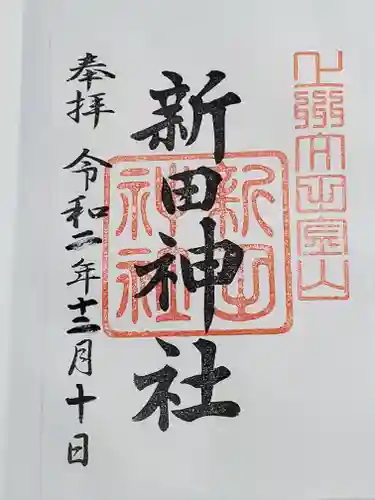 上州太田金山
新田神社
新田
神社
奉拝 令和二年十二月十日